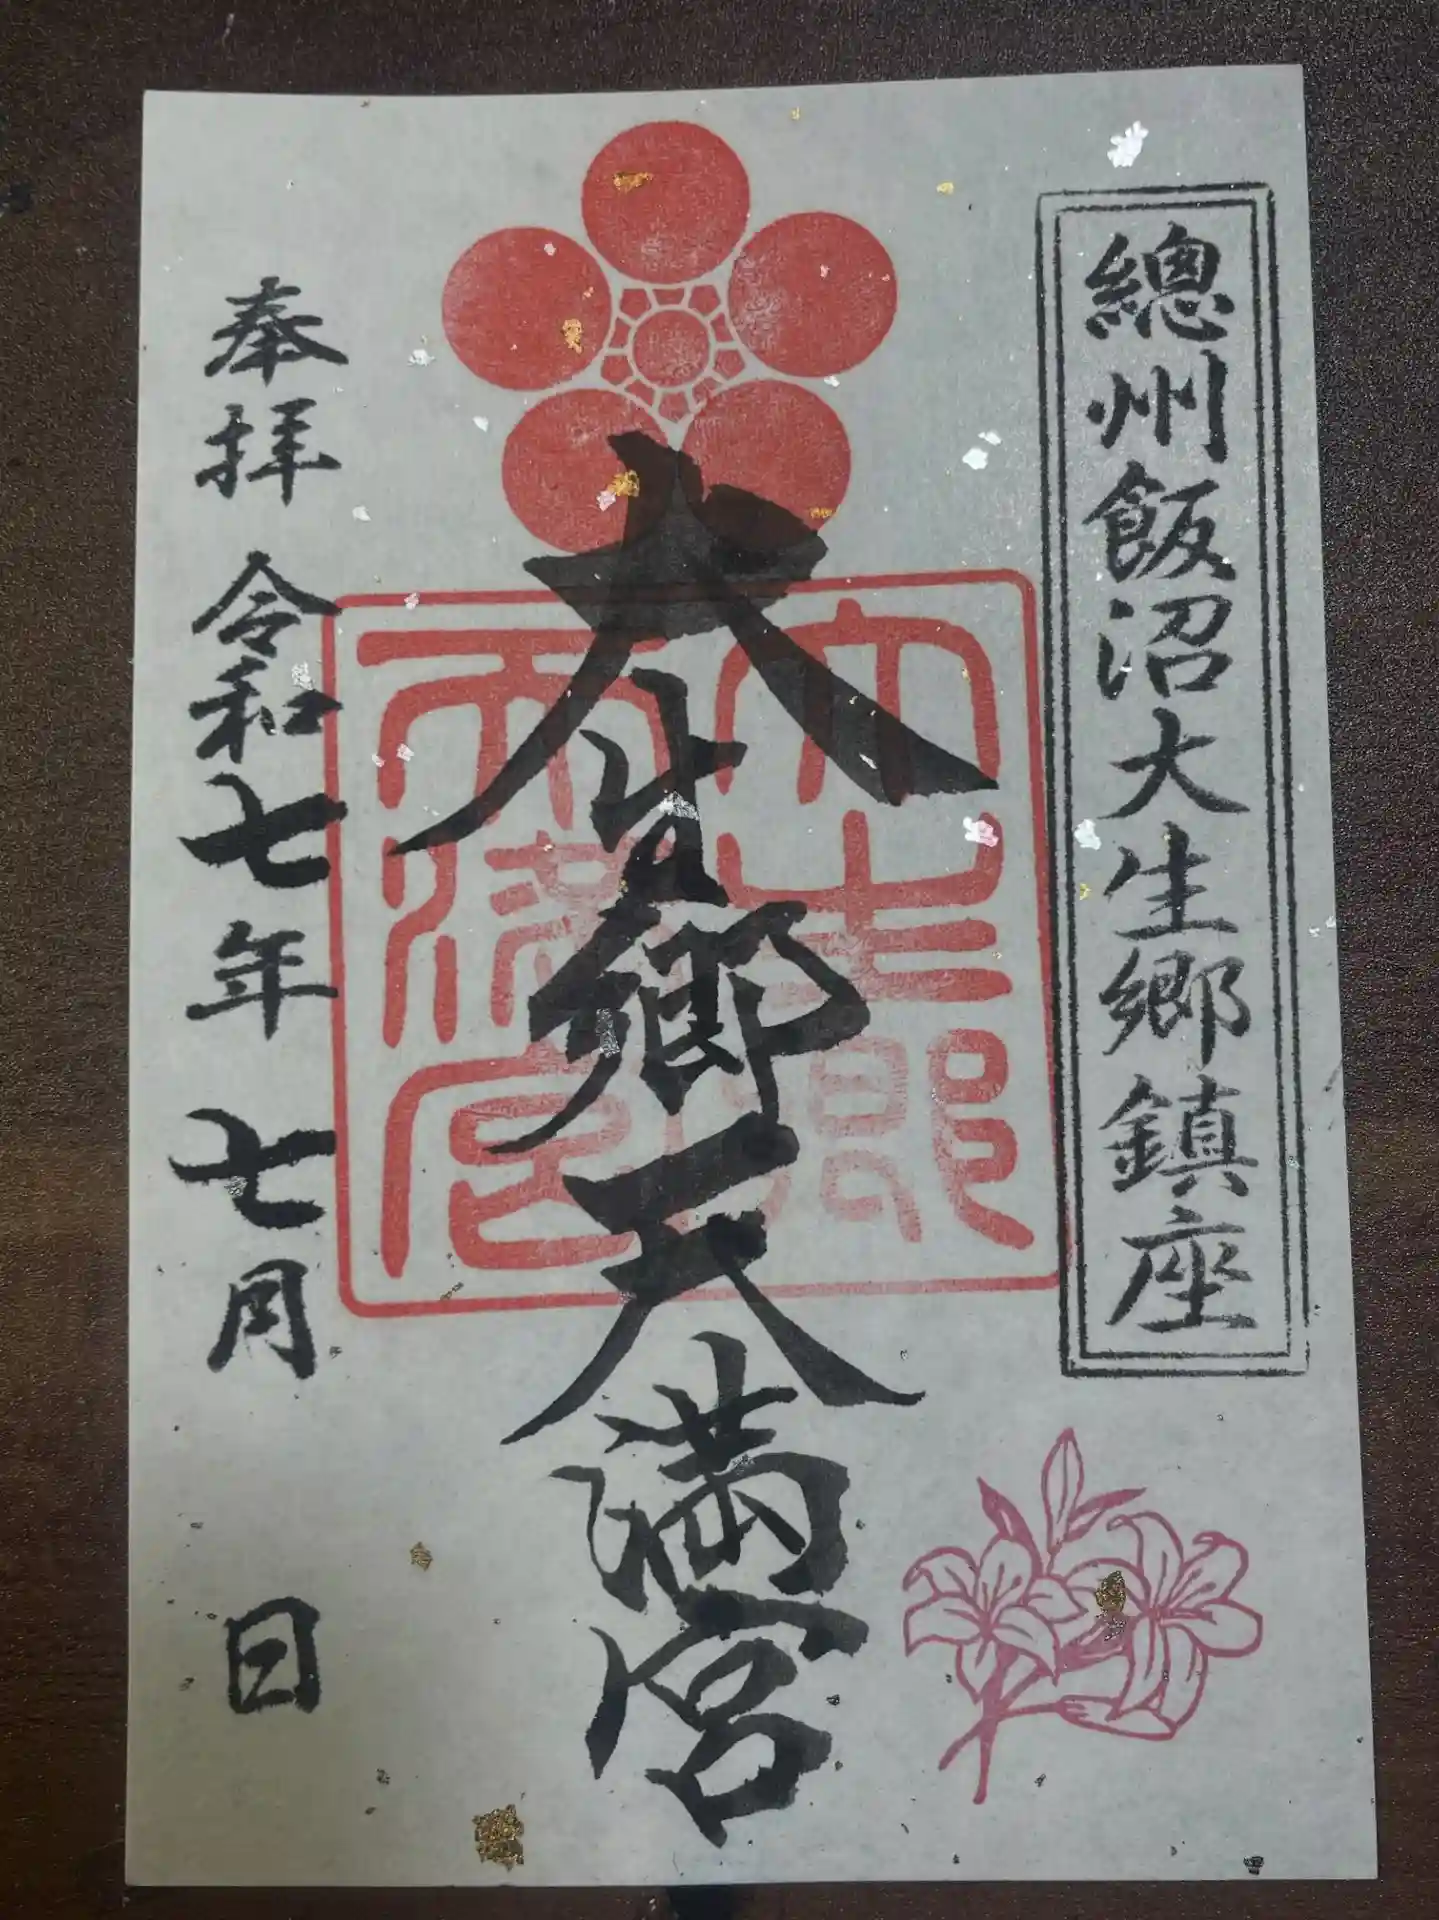 總州飯沼大生郷鎮座
大生郷天満宮
大生郷
天満宮
奉拝 令和七年 七月 日